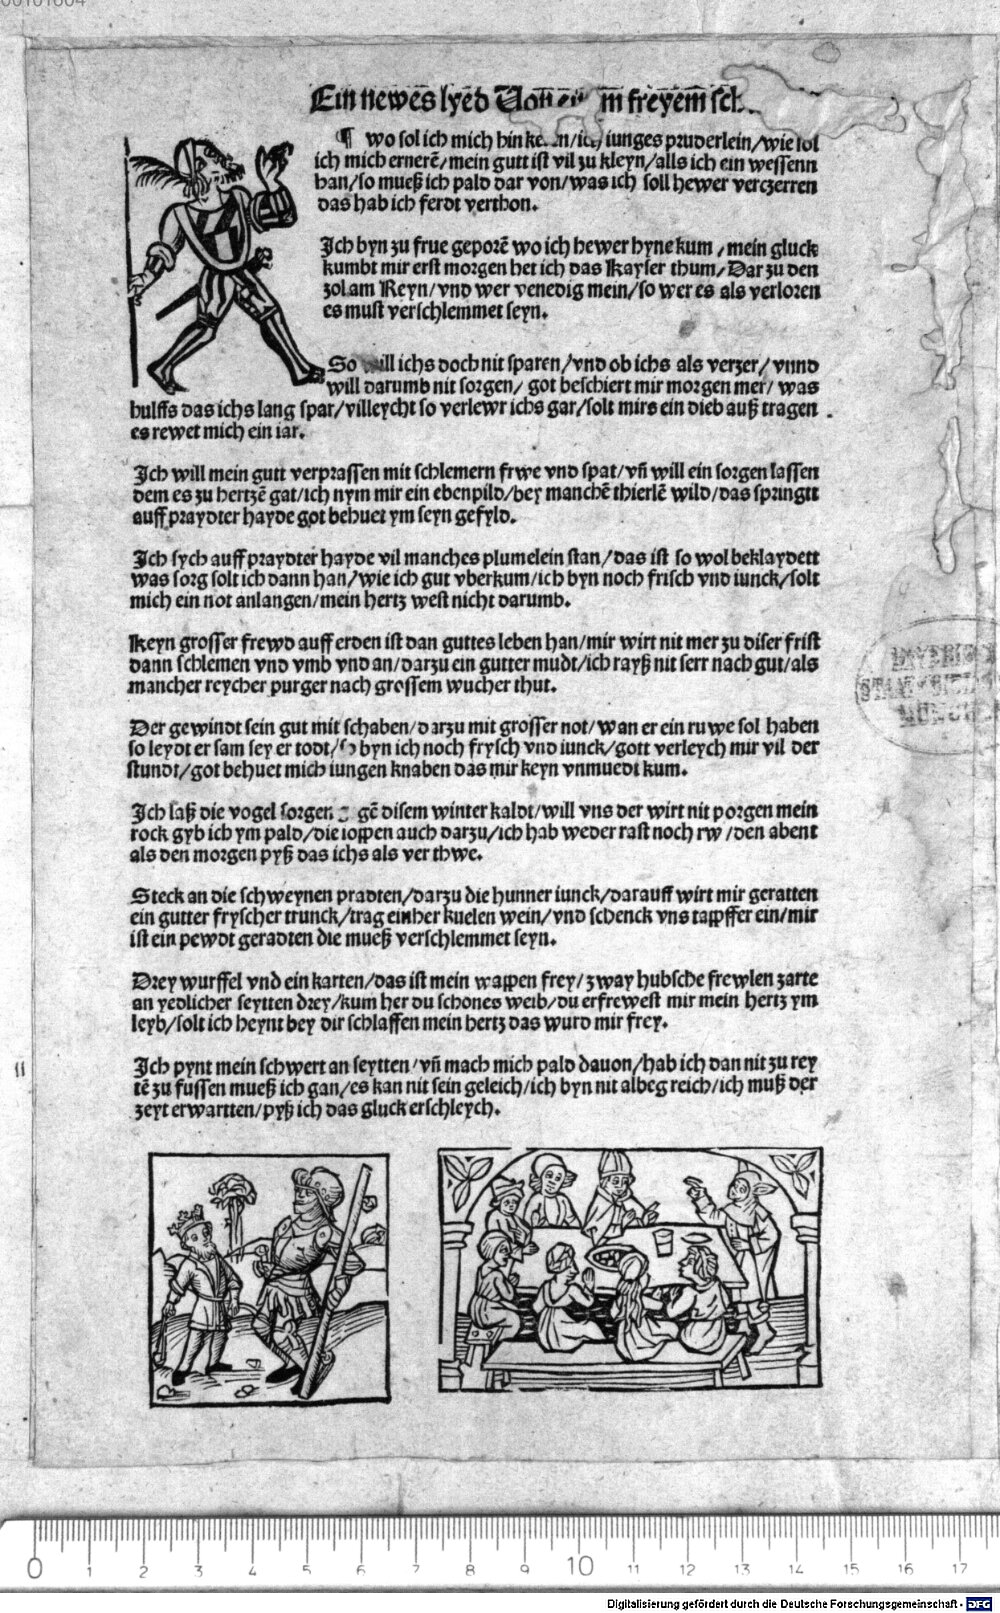 Ein newes lyed Von m freyem
¶ wo sol ich mich hin iunges pruderlein/wie sol
ich mich ernerē/mein gutt ist vil zu kleyn/alls ich ein wessenn
han/so mueß ich pald dar von/was ich soll hewer verczerren
das hab ich ferdt verthon.
Ich byn zu frue geporē wo ich hewer hyne kum/mein gluck
kumbt mir erst morgen het ich das Kayser thum/Dar zu den
zol am Reyn/vnd wer venedig mein/so wer es als verloren
es must verschlemmet seyn.
So will ichs doch nit sparen/vnd ob ichs als verzer/vnnd
will darumb nit sorgen/got beschiert mir morgen mer/was
hulffs das ichs lang spar/villeycht so verlewr ichs gar/solt mirs ein dieb auß tragen
es rewet mich ein iar.
Ich will mein gutt verprassen mit schlemern frwe vnd spat/vñ will ein sorgen lassen
dem es zu hertzē gat/ich nym mir ein ebenpild/bey manchē thierlē wild/das springtt
auff praydter hayde got behuet ym seyn gefyld.
Ich sych auff praydter hayde vil manches plumelein stan/das ist so wol beklaydett
was sorg solt ich dann han/wie ich gut vberkum/ich byn noch frisch vnd iunck/solt
mich ein not anlangen/mein hertz west nicht darumb.
Keyn grosser frewd auff erden ist dan guttes leben han/mir wirt nit mer zu diser frist
dann schlemen vnd vmb vnd an/darzu ein gutter mudt/ich rayß nit serr nach gut/als
mancher reycher purger nach grossem wucher thut.
Der gewindt sein gut mit schaben/darzu mit grosser not/wan er ein ruwe sol haben
so leydt er sam sey er todt/so byn ich noch frysch vnd iunck/gott verleych mir vil der
stundt/got behuet mich iungen knaben das mir keyn vnmuedt kum.
Ich laß die vogel sorgen gē disem winter kaldt/will vns der wirt nit porgen mein
rock gyb ich ym pald/die ioppen auch darzu/ich hab weder rast noch rw/den abent
als den morgen pyß das ichs als ver thwe.
Steck an die schweynen pradten/darzu die hunner iunck/darauff wirt mir geratten
ein gutter fryscher trunck/trag einher kuelen wein/vnd schenck vns tappffer ein/mir
ist ein pewdt geradten die mueß verschlemmet seyn.
Drey wurffel vnd ein karten/das ist mein wappen frey/zway hubsche frewlen zarte
an yedlicher seytten drey/kum her du schones weib/du erfrewest mir mein hertz ym
leyb/solt ich heynt bey dir schlaffen mein hertz das wurd mir frey.
Ich pynt mein schwert an seytten/vñ mach mich pald dauon/hab ich dan nit zu rey
tē zu fussen mueß ich gan/es kan nit sein geleich/ich byn nit albeg reich/ich muß der
zeyt erwartten/pyß ich das gluck erschleych.
11
0 1 2 3 4 5 6 7 8 9 10 11 12 13 14 15 16 17
Digitalisierung gefördert durch die Deutsche Forschungsgemeinschaft - DFG